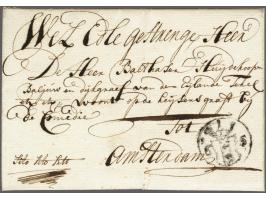 Wel Edle Gestrenge Heer
De Heer Balthasar Huydekoper
Baljuw en dijkgraef van den Eylande Texel
etc etc woont op de keysers graft bij
de Comedie
Tot
Amsterdam
ito ito ito